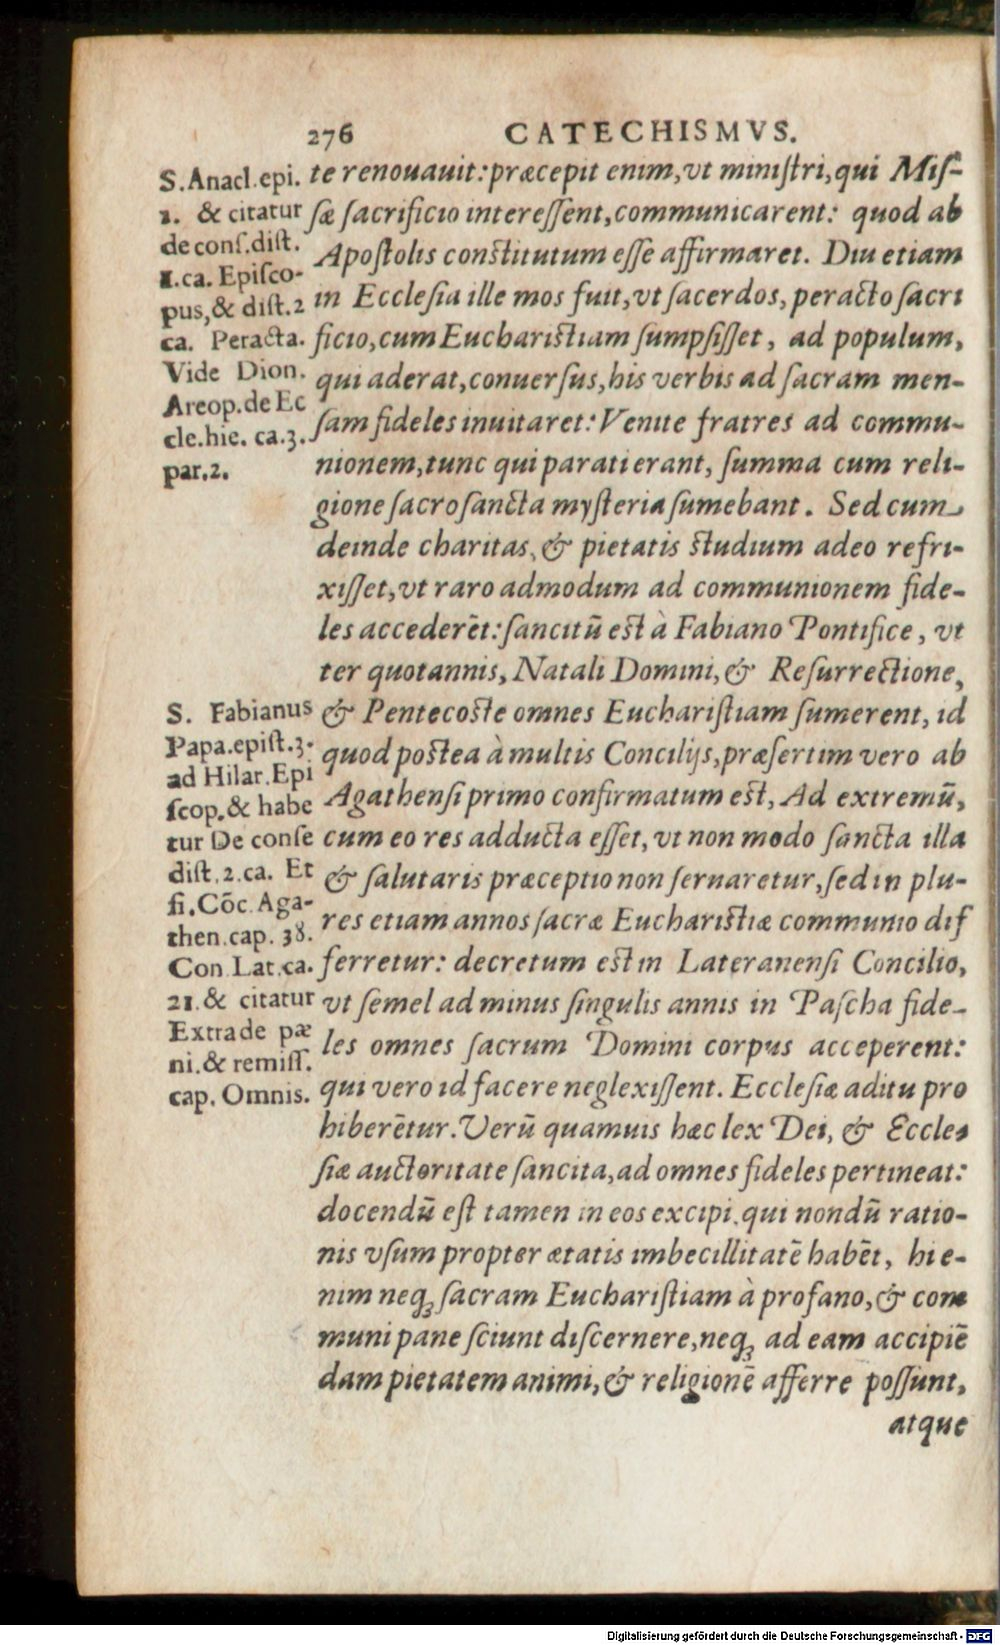 276 CATECHISMVS.
S. Anacl. epi.
1. & citatur
de conſ. diſt.
1. ca. Epiſco-
pus, & diſt. 2
ca. Peracta.
Vide Dion.
Areop. de Ec
cle. hie. ca. 3.
par. 2.
te renouauit: præcepit enim, vt miniſtri, qui Miſ-
ſæ ſacrificio intereſſent, communicarent: quod ab
Apoſtolis conſtitutum eſſe affirmaret. Diu etiam
in Eccleſia ille mos fuit, vt ſacerdos, peracto ſacri
ficio, cum Euchariſtiam ſumpſiſſet, ad populum,
qui aderat, conuerſus, his verbis ad ſacram men-
ſam fideles inuitaret: Venite fratres ad commu-
nionem, tunc qui parati erant, ſumma cum reli-
gione ſacroſancta myſteria ſumebant. Sed cum
deinde charitas, & pietatis ſtudium adeo refri-
xiſſet, vt raro admodum ad communionem fide-
les accederēt: ſancitū eſt à Fabiano Pontifice, vt
ter quotannis, Natali Domini, & Reſurrectione,
S. Fabianus
Papa. epiſt. 3.
ad Hilar. Epi
ſcop. & habe
tur De conſe
diſt. 2. ca. Et
ſi. Cōc. Aga-
then. cap. 38.
Con. Lat. ca.
21. & citatur
Extra de pæ
ni. & remiſſ.
cap. Omnis.
& Pentecoſte omnes Euchariſtiam ſumerent, id
quod poſtea à multis Concilijs, præſertim vero ab
Agathenſi primo confirmatum eſt, Ad extremū,
cum eo res adducta eſſet, vt non modo ſancta illa
& ſalutaris præceptio non ſeruaretur, ſed in plu-
res etiam annos ſacræ Euchariſtiæ communio dif
ferretur: decretum eſt in Lateranenſi Concilio,
vt ſemel ad minus ſingulis annis in Paſcha fide-
les omnes ſacrum Domini corpus acceperent:
qui vero id facere neglexiſſent. Eccleſiæ aditu pro
hiberētur. Verū quamuis hæc lex Dei, & Eccle-
ſiæ auctoritate ſancita, ad omnes fideles pertineat:
docendū eſt tamen in eos excipi, qui nondū ratio-
nis vſum propter ætatis imbecillitatē habēt, hi e-
nim neqꝫ ſacram Euchariſtiam à profano, & com
muni pane ſciunt diſcernere, neqꝫ ad eam accipiē
dam pietatem animi, & religionē afferre poſſunt,
atque
Digitalisierung gefördert durch die Deutsche Forschungsgemeinschaft - DFG